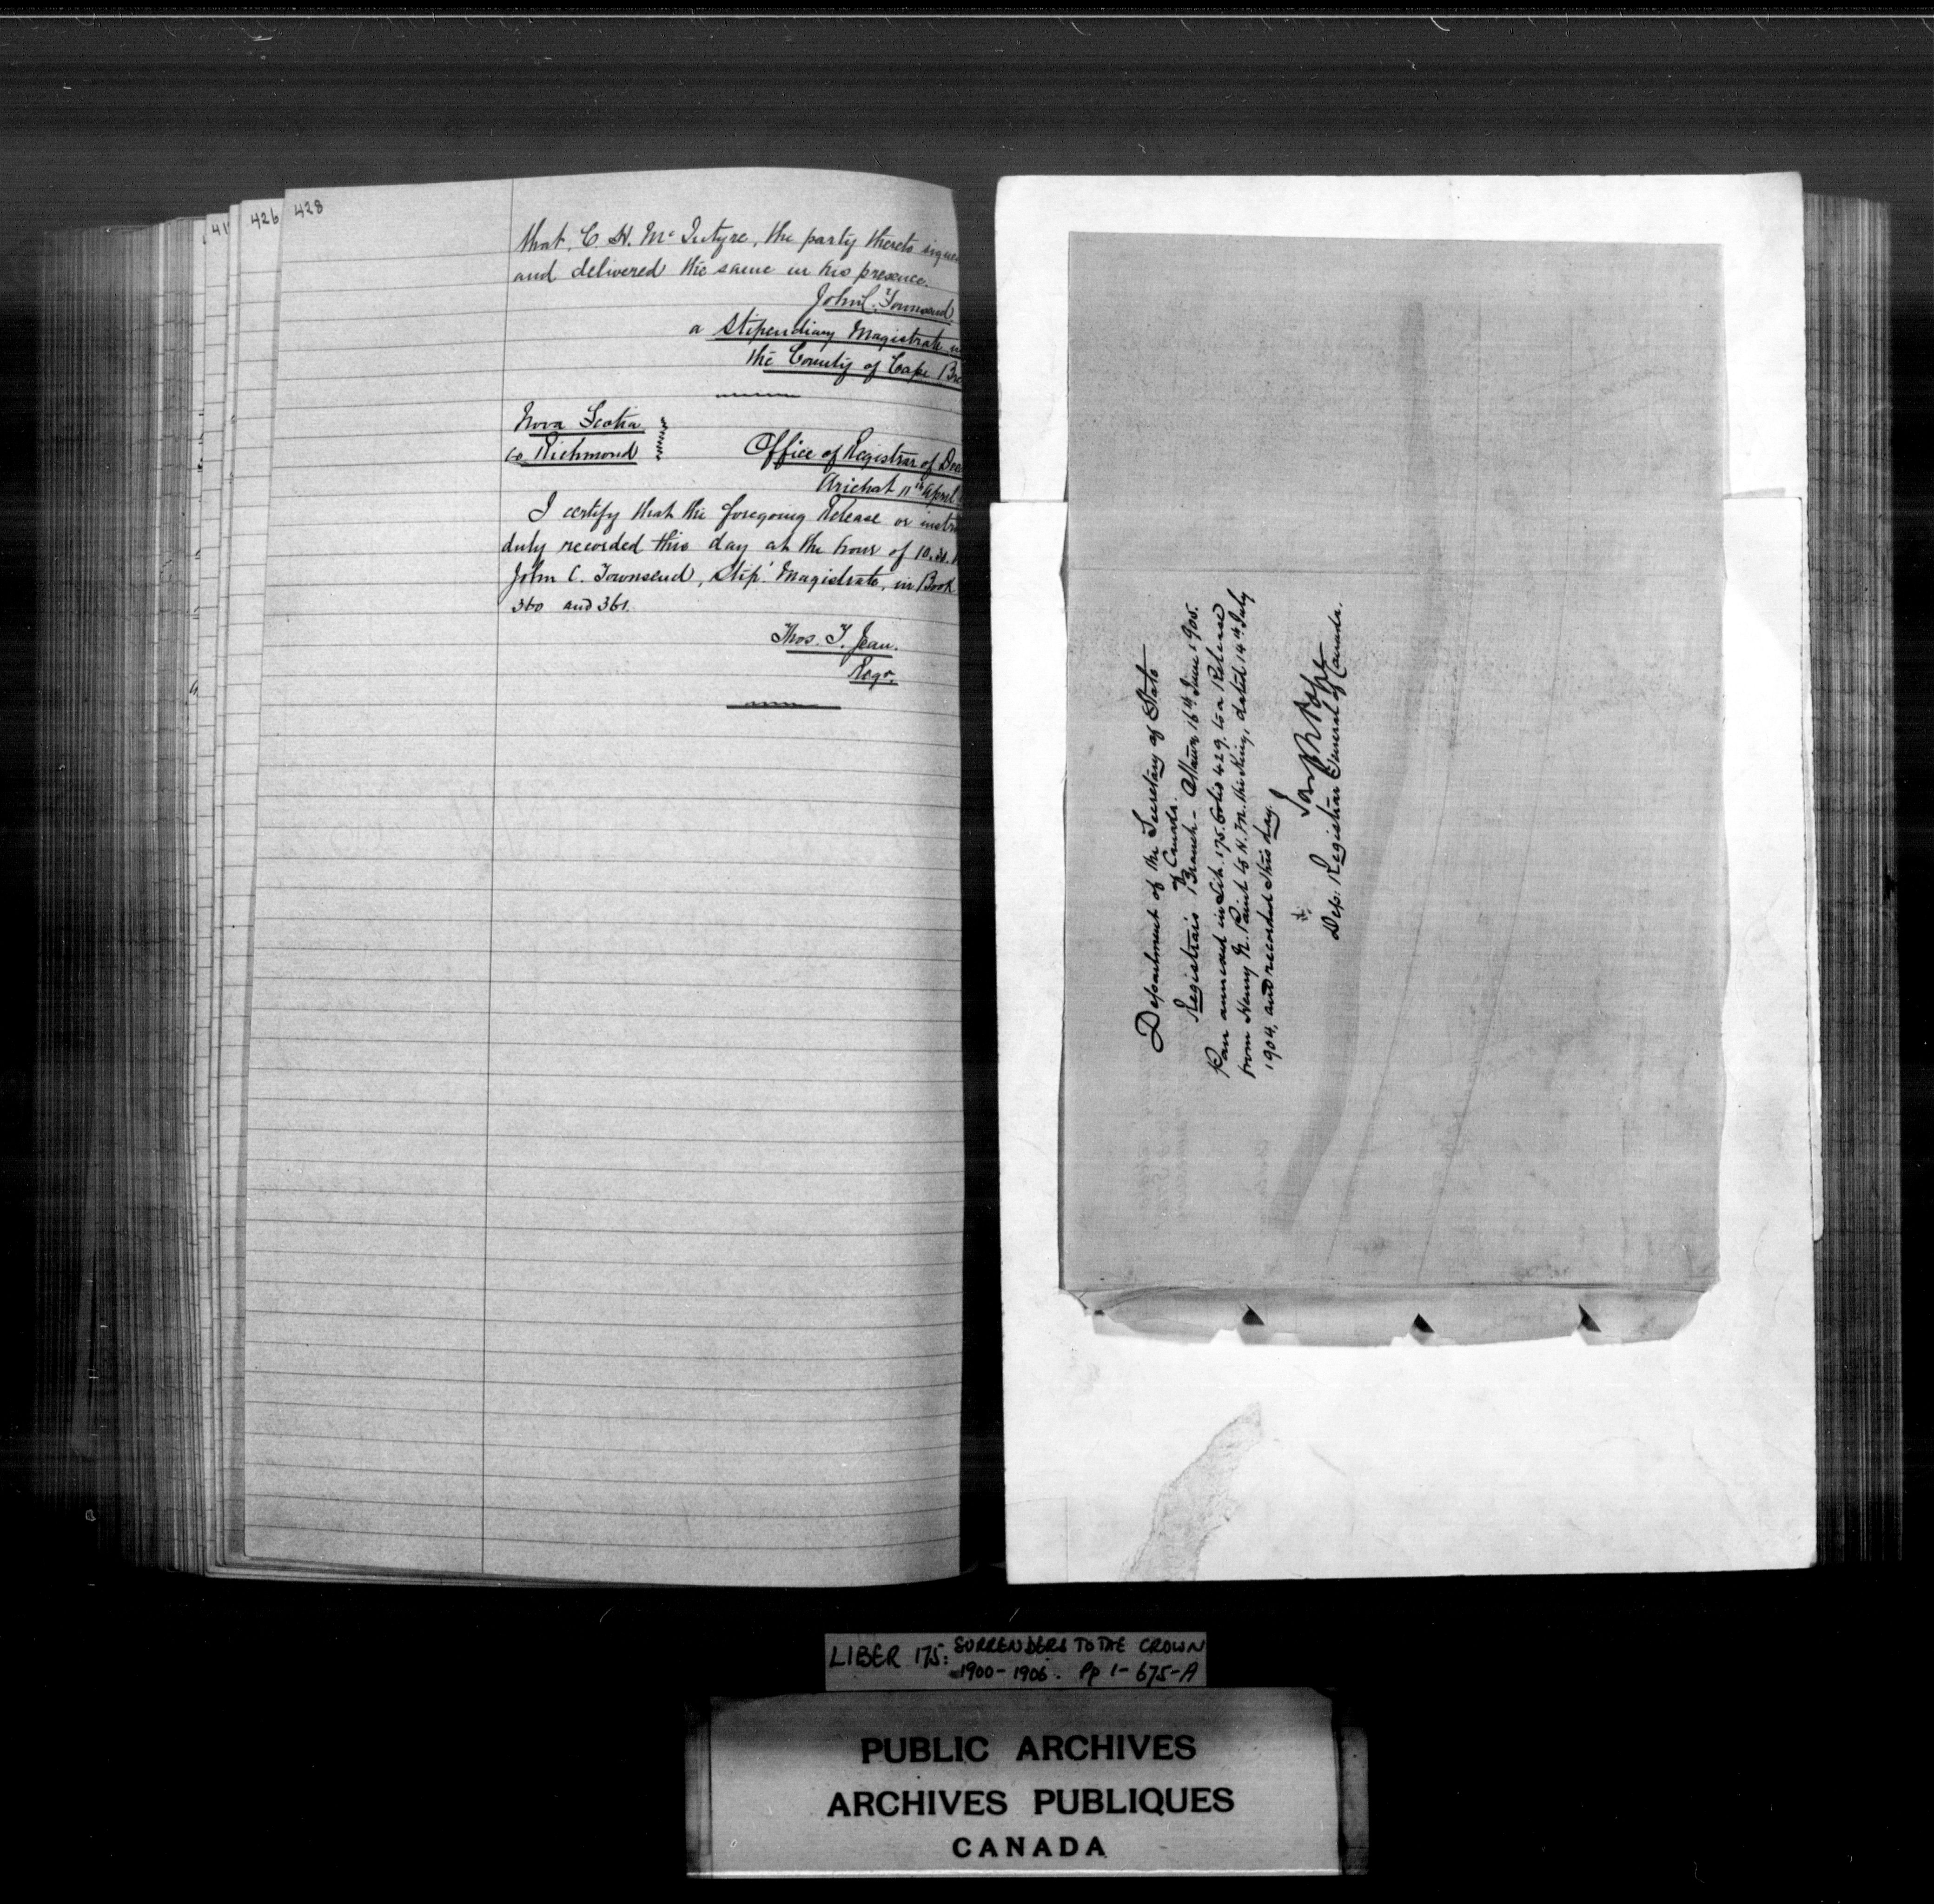 41
426
428
that, C. H. McIntyre, the party thereto signed
and delivered the same in his presence.
John C. Townsend
a Stipendiary Magistrate
the County of Cape Bre
Nova Scotia
Co Richmond
Office of Registrar of Dee
Arichat 11th April
I certify that the foregoing Release or instru
duly recorded this day at the hour of 10.30.
John C. Townsend, Stip. Magistrate, in Book
360 and 361.
Thos. T. Jean.
Regr.
Department of the Secretary of State
of Canada.
Registrar's Branch - Ottawa 16th June 1905.
Plan annexed in Lib. 175. Folio 429. to a Release
from Henry N. Paint to H. M. the King, dated 14th July
1904, and recorded this day.
Joseph Pope
Dep: Registrar General of Canada.
LIBER 175: SURRENDERS TO THE CROWN
1900-1906. Pp 1-675-A
PUBLIC ARCHIVES
ARCHIVES PUBLIQUES
CANADA